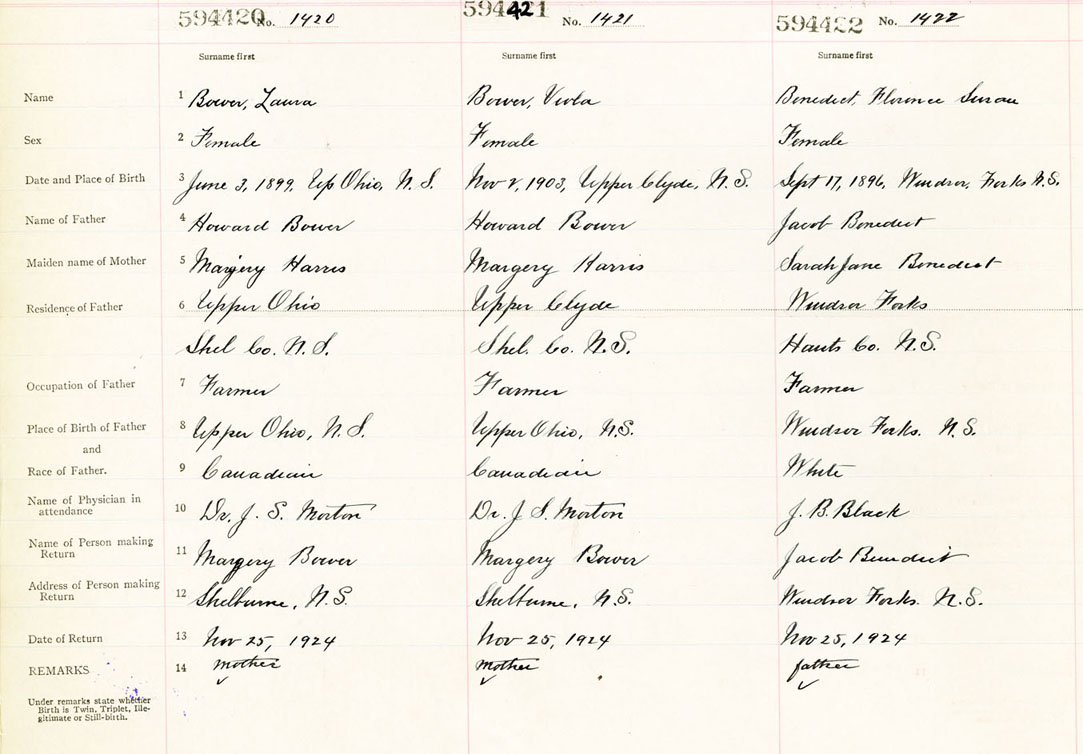 594420 No. 1420 594421 No. 1421 594422 No. 1422
Surname first Surname first Surname first
Name 1 Bower, Laura Bower, Viola Benedict, Florence Susan
Sex 2 Female Female Female
Date and Place of Birth 3 June 3, 1899, Up Ohio, N.S. Nov 2, 1903, Upper Clyde, N.S. Sept 17, 1896, Windsor, Forks N.S.
Name of Father 4 Howard Bower Howard Bower Jacob Benedict
Maiden name of Mother 5 Margery Harris Margery Harris Sarah Jane Benedict
Residence of Father 6 Upper Ohio Upper Clyde Windsor Forks
Shel Co. N.S. Shel. Co. N.S. Hants Co. N.S.
Occupation of Father 7 Farmer Farmer Farmer
Place of Birth of Father 8 Upper Ohio, N.S. Upper Ohio, N.S. Windsor Forks. N.S.
and
Race of Father. 9 Canadian Canadian White
Name of Physician in
attendance 10 Dr. J. S. Morton Dr. J S. Morton J. B. Black
Name of Person making
Return 11 Margery Bower Margery Bower Jacob Benedict
Address of Person making
Return 12 Shelburne, N.S. Shelburne, N.S. Windsor Forks. N.S.
Date of Return 13 Nov 25, 1924 Nov 25, 1924 Nov 25, 1924
REMARKS 14 mother mother father
Under remarks state whether
Birth is Twin, Triplet, Ille-
gitimate or Still-birth.